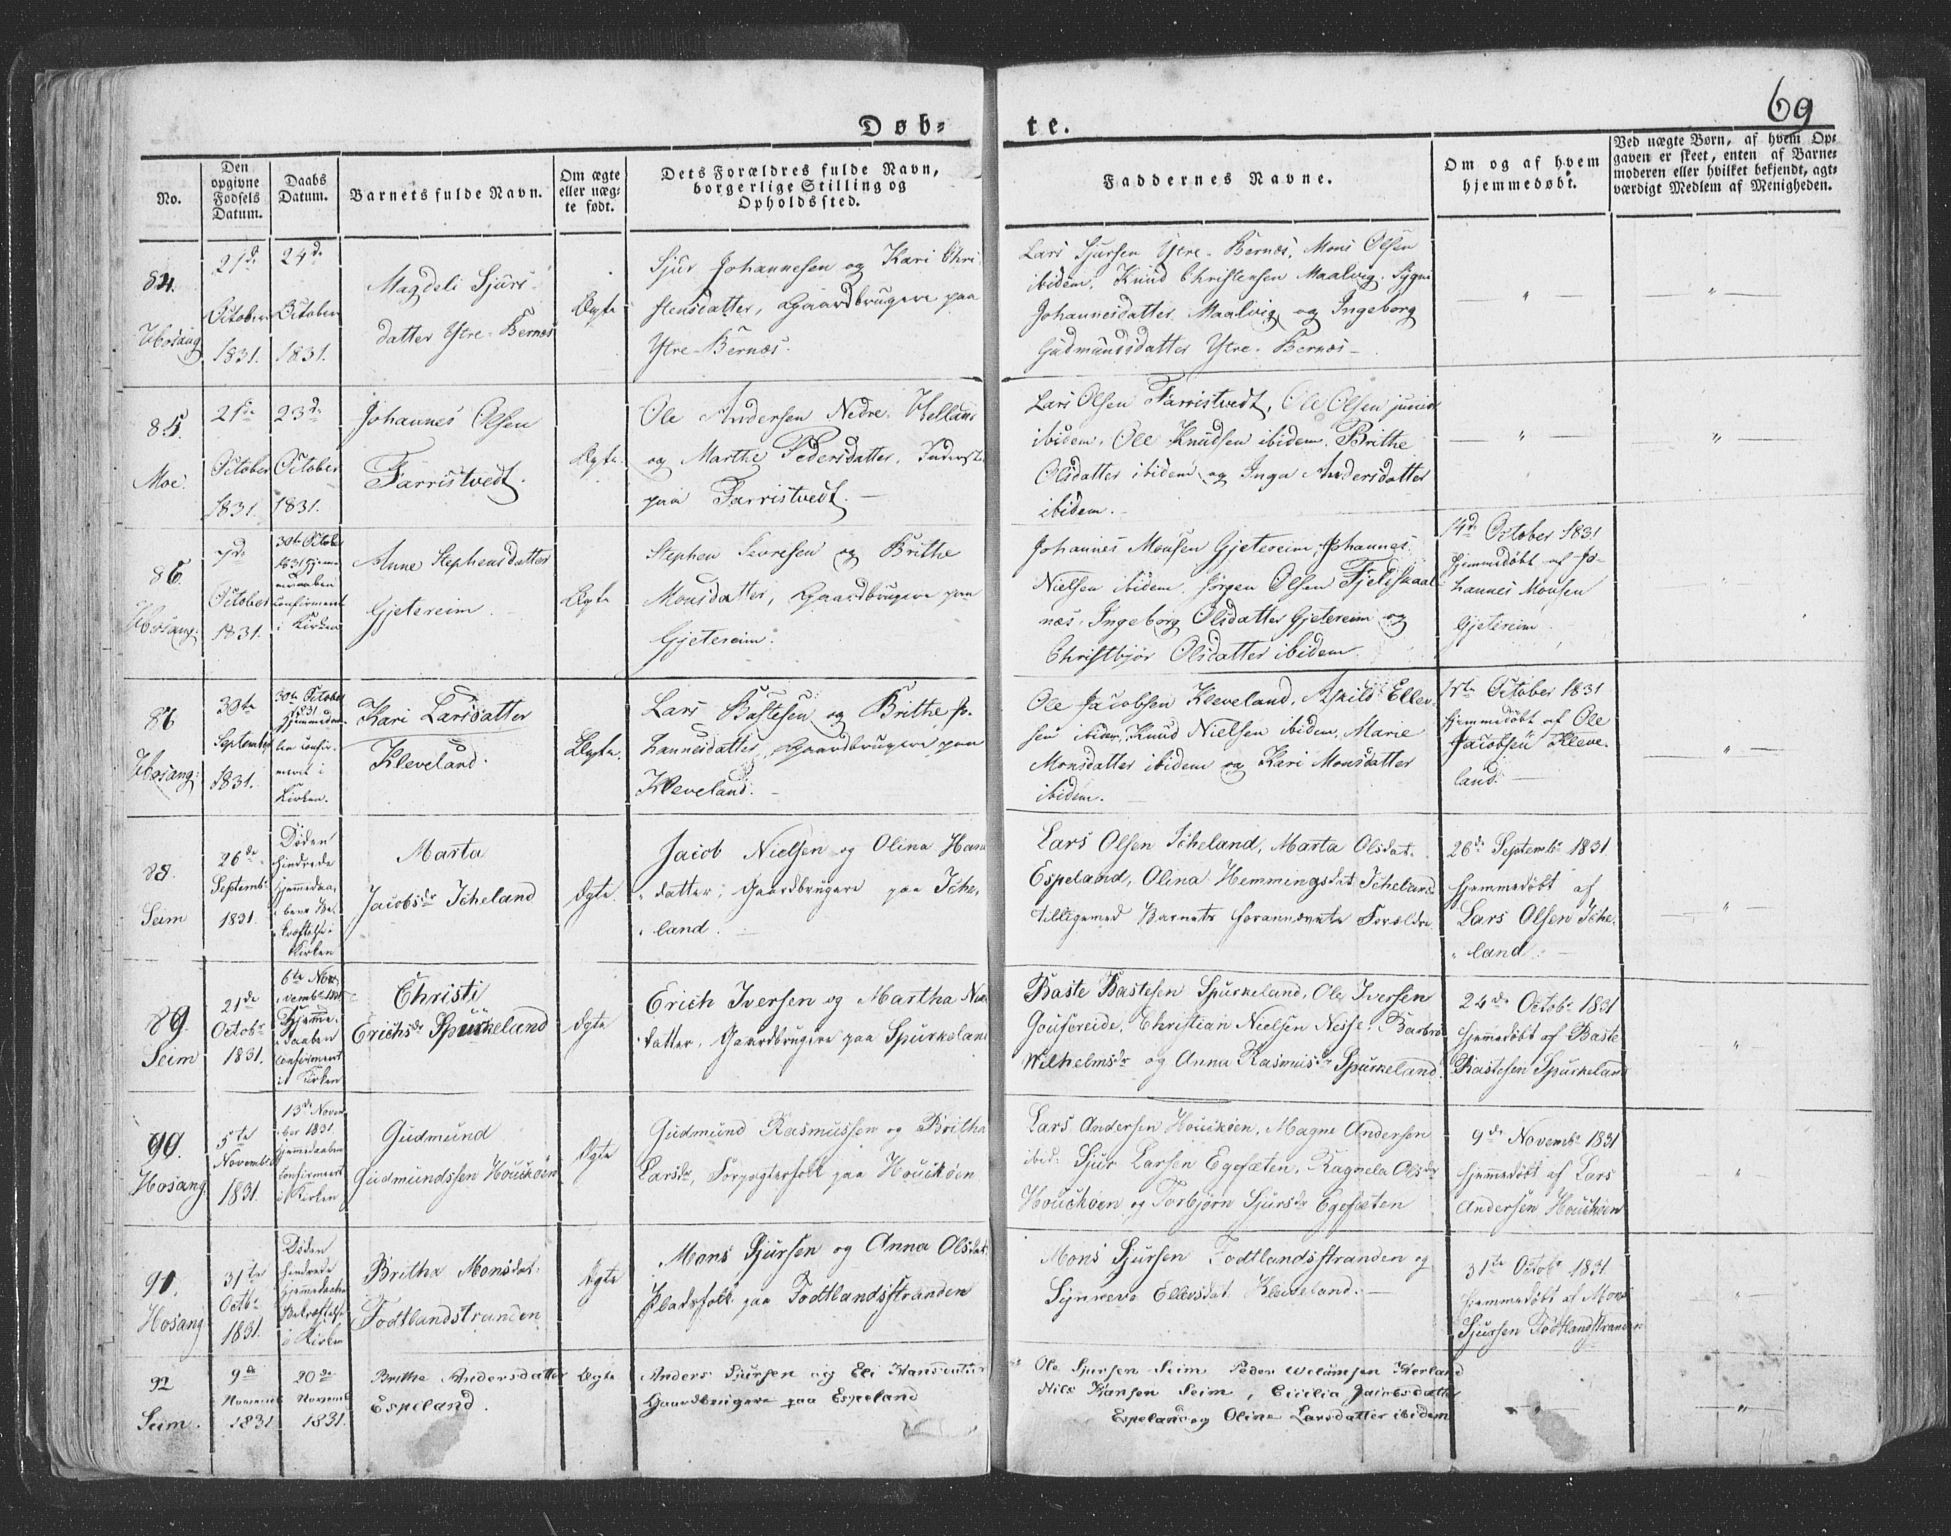 69
Døb-
te.
No.
Den opgivne Fødsels Datum.
Daabs Datum.
Barnets fulde Navn.
Om ægte eller uægte født.
Dets Forældres fulde Navn, borgerlige Stilling og Opholdssted.
Faddernes Navne.
Om og af hvem hjemmedøbt.
Ved uægte Børn, af hvem Opgaven er skeet, enten af Barnemoderen eller hvilket bekjendt, agtværdigt Medlem af Menigheden.
84.
Hosang
21de
October
1831.
24de
October
1831.
Magdeli Sjurs-
datter Ytre-Bernæs
Ægte
Sjur Johannesen og Kari Chri-
stensdatter, Gaardbrugere paa
Ytre-Bernæs.
Lars Sjursen Ytre-Bernæs, Mons Olsen
ibidem, Knud Christensen Maalvig, Sygni
Johannesdatter Maalvig og Ingeborg
Gudmundsdatter Ytre-Bernæs-
85.
Moe.
21de
October
1831.
23de
October
1831.
Johannes Olsen
Farristvedt.
Ægte.
Ole Andersen Nedre-Helland
og Marthe Pedersdatter,
paa Farristvedt.
Lars Olsen Farristvedt, Ole Olsen junior
ibidem, Ole Knudsen ibidem, Brithe
Olsdatter ibidem og Inga Andersdatter
ibidem.
86.
Hosang.
7de
October
1831.
30te October
1831 Hjemmedaaben
confirmeret
i Kirken
Anne Stephensdatter
Gjetereim.
Ægte
Stephen Sevrisen og Brithe
Monsdatter, Gaardbrugere paa
Gjetereim.
Johannes Monsen Gjetereim, Johannes
Nielsen ibidem, Jørgen Olsen Fjeldskaal-
næs, Ingeborg Olsdatter Gjetereim og
Christbjør Olsdatter ibidem.
14de October 1831
hjemmedøbt af Jo-
hannes Monsen
Gjetereim.
86
Hosang:
30te
September
1831.
30te October
1831
Hjemmedaa-
ben confir-
meret i
Kirken.
Kari Larsdatter
Kleveland.
Ægte.
Lars Bastesen og Brithe Jo-
hannesdatter, Gaardbrugere paa
Kleveland.
Ole Jacobsen Kleveland, Askild Ellev-
sen ibidem, Knud Nielsen ibidem, Marie
Monsdatter ibidem og Kari Monsdatter
ibidem.
1ste October 1831
hjemmedøbt af Ole
Jacobsen Kleve-
land.
88.
Seim
26de
Septembr
1831.
Døden
hindrede
Hjemmedaa-
bens Be-
kræftelse i
Kirken
Marta
Jacobsdr Icheland
Ægte
Jacob Nielsen og Olina Hans
datter, Gaardbrugere paa Iche-
land.
Lars Olsen Icheland, Marta Olsdat.
Espeland, Olina Hemmingsdat. Icheland
tilligemed Barnets forannævnte Forældre
26de Septembr 1831
hjemmedøbt af
Lars Olsen Iche-
land.
89.
Seim
21de
Octobr
1831.
6te No-
vembr 1831
Hjemme-
daaben
confirmeret
i Kirken
Christi
Erichsdr Spurkeland
Ægte
Erich Iversen og Martha
datter, Gaardbrugere paa Spurkeland
Baste Bastesen Spurkeland, Ole Iversen
Christian Nielsen Nesse, Barbro
Wilhelmsdr og Anna Rasmusdr Spurkeland.
24de Octobr 1831
hjemmedøbt af Baste
Bastesen Spurkeland
90.
Hosang
5te
Novembr
1831.
13de Novem-
ber 1831.
Hjemmedaaben
confirmeret
i Kirken
Gudmund
Gudmundssen Houckøen
Ægte
Gudmund Rasmussen og Britha
Larsdr, Forpagterfolk paa Houckøen
Lars Andersen Houckøen, Magne Andersen
ibid: Sjur Larsen Egesæten, Ragnela Olsdr
Houckøen og Torbjørn Sjursdr Egesæten
9de Novembr 1831
hjemmedøbt af Lars
Andersen Houckøen
91.
Hosang
31te
Octbr
1831.
Døden
hindrede
Hjemmedaabens
Bekræftelse
i Kirken
Britha Monsdat.
Fodtlandstranden
Ægte
Mons Sjursen og Anna Olsdat.
Pladsfolk paa Fodtlandsstranden
Mons Sjursen Fodtlandsstranden og
Synneve Ellevsdat. Kleveland.
31te Octobr 1831.
hjemmedøbt af Mons
Sjursen Fodtlandstranden
92
Seim.
9de
Novemb
1831
20de
Novemb
1831.
Brithe Andersdatter
Espeland.
Ægte
Anders Sjursen og Eli Hansdatter
Gaardbrugere paa Espeland
Ole Sjursen Seim Peder Welomsen
Nils Hansen Seim, Cicilia Jacobsdatter
Espeland og Oline Larsdatter ibidem